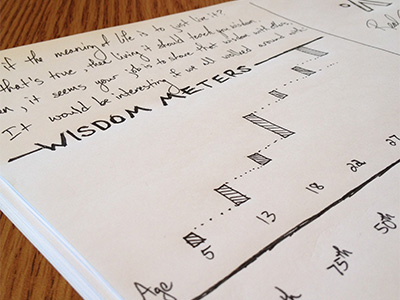 if the meaning of life is to just live it?
that's true, then living it should teach you wisdom
en, it seems your job is to share that wisdom with others.
It would be interesting if we all walked around with
WISDOM METERS
5 13 18 22 27
Age
75th 50th